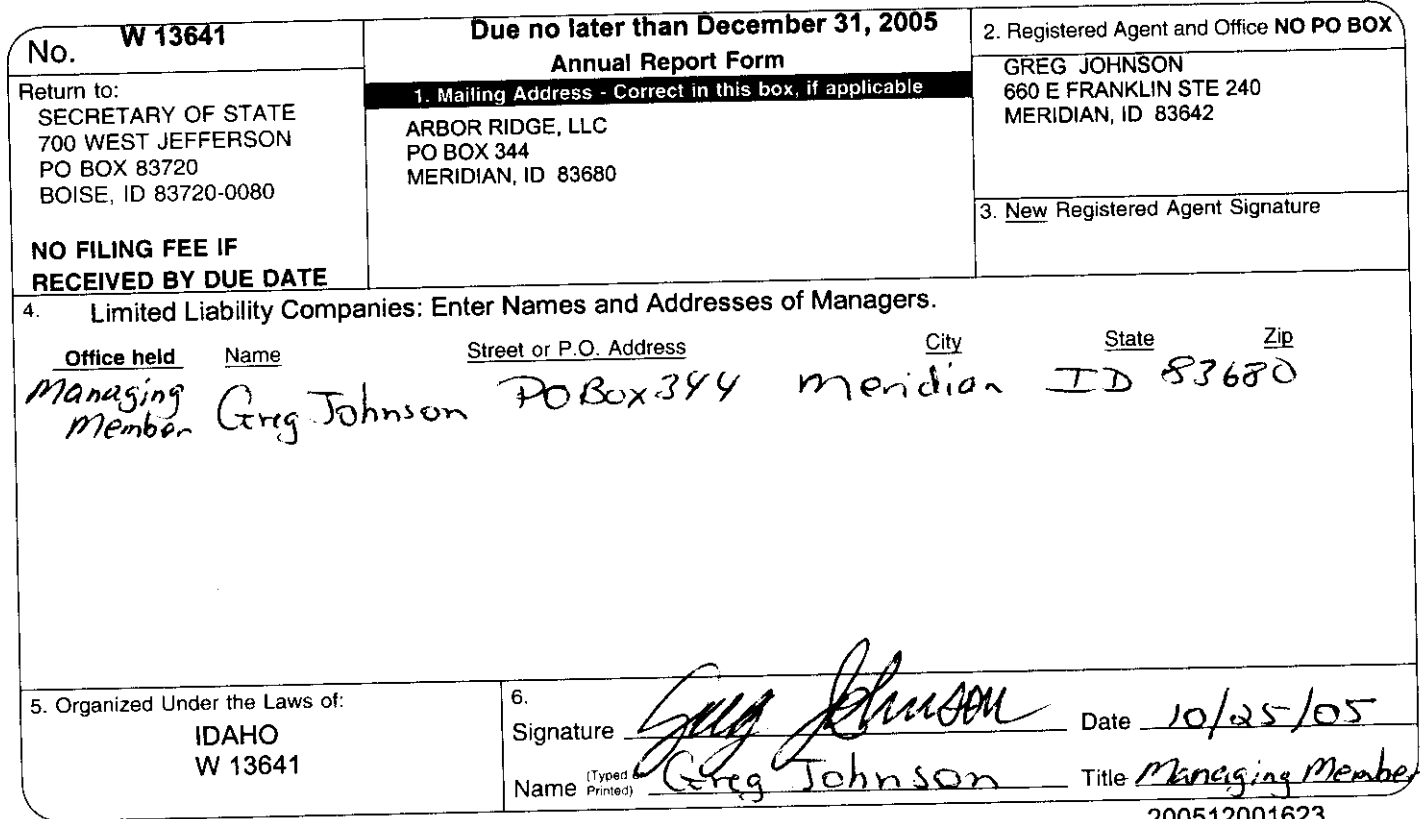 No. W 13641
Return to:
SECRETARY OF STATE
700 WEST JEFFERSON
PO BOX 83720
BOISE, ID 83720-0080
NO FILING FEE IF
RECEIVED BY DUE DATE
Due no later than December 31, 2005
Annual Report Form
1. Mailing Address - Correct in this box, if applicable
ARBOR RIDGE, LLC
PO BOX 344
MERIDIAN, ID 83680
2. Registered Agent and Office NO PO BOX
GREG JOHNSON
660 E FRANKLIN STE 240
MERIDIAN, ID 83642
3. New Registered Agent Signature
4. Limited Liability Companies: Enter Names and Addresses of Managers.
Office held Name Street or P.O. Address City State Zip
Managing Member Greg Johnson PO Box 344 Meridian ID 83680
5. Organized Under the Laws of:
IDAHO
W 13641
6.
Signature Greg Johnson Date 10/25/05
Name (Typed or Printed) Greg Johnson Title Managing Member
200512001623